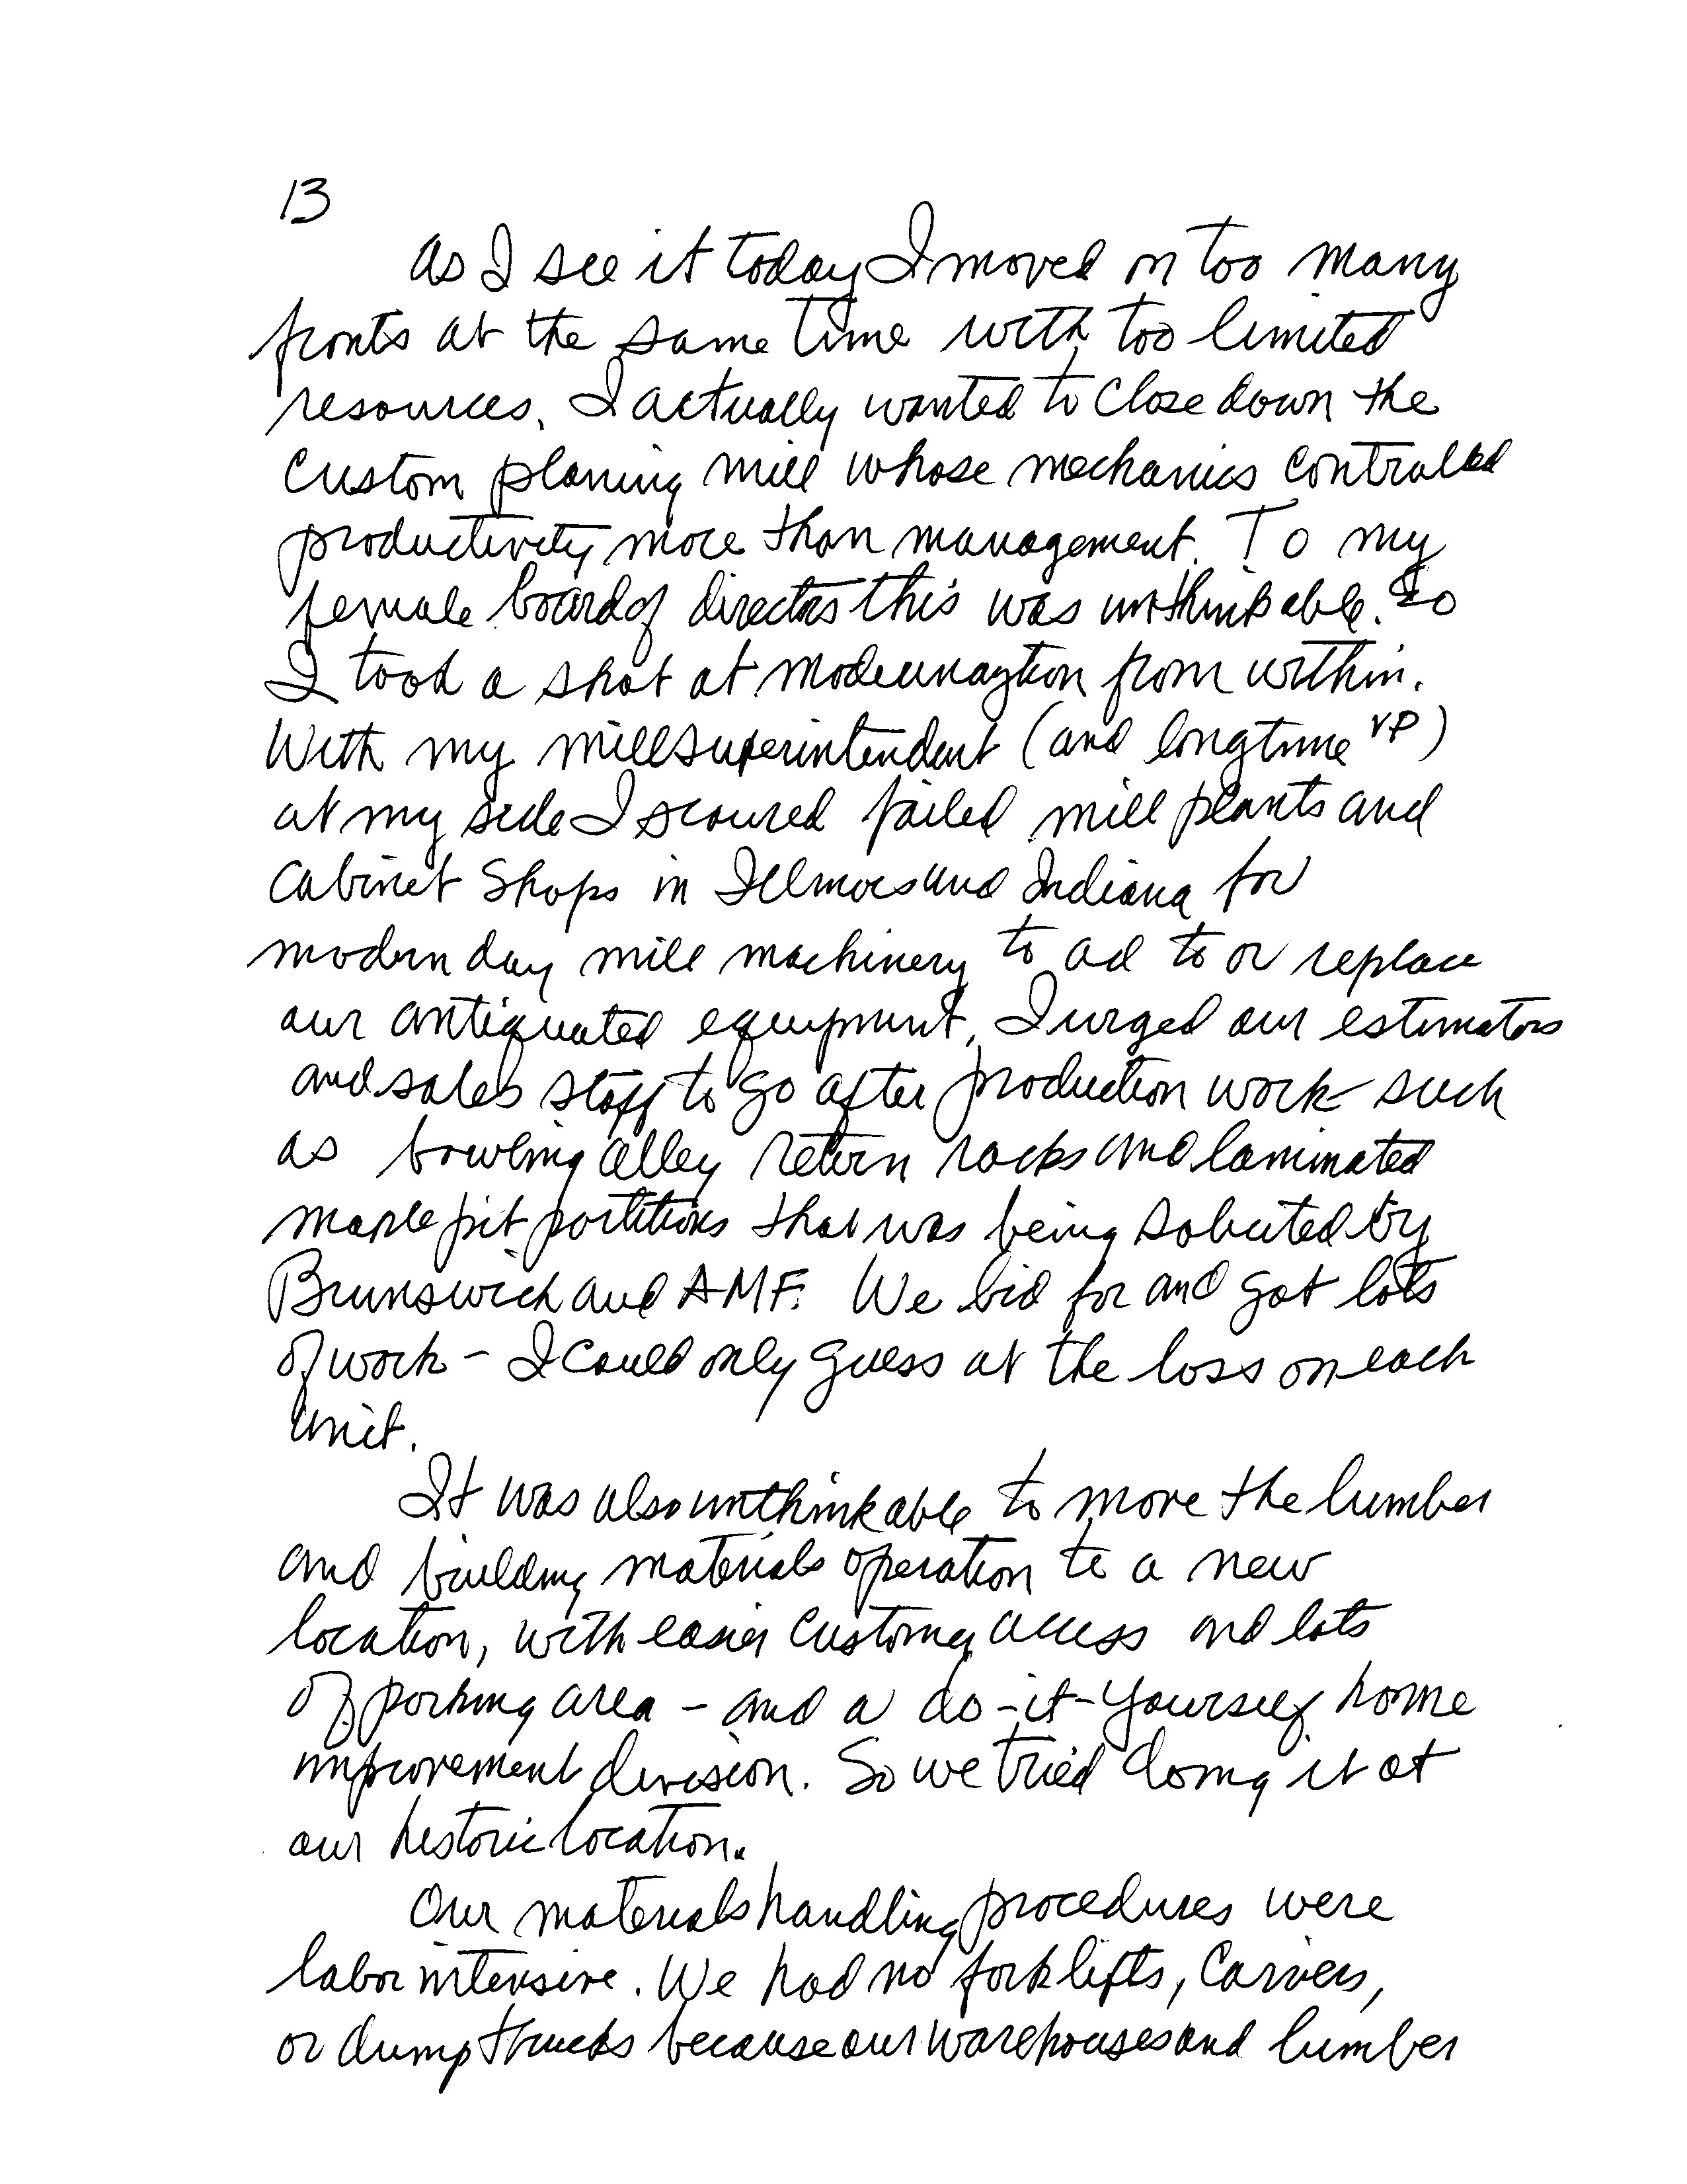 13
As I see it today I moved on too many
fronts at the same time with too limited
resources. I actually wanted to close down the
custom planing mill whose mechanics controlled
productivity more than management. To my
female board of directors this was unthinkable. So
I took a shot at modernization from within.
With my mill superintendent (and longtime VP)
at my side I scoured failed mill plants and
cabinet shops in Illinois and Indiana for
modern day mill machinery to ad to or replace
our antiquated equipment. I urged our estimators
and sales staff to go after production work such
as bowling alley return racks and laminated
maple pit partitions that was being solicited by
Brunswick and AMF. We bid for and got lots
of work - I could only guess at the loss on each
unit.
It was also unthinkable to move the lumber
and building materials operation to a new
location, with easier customer access and lots
of parking area - and a do-it-yourself home
improvement division. So we tried doing it at
our historic location.
Our materials handling procedures were
labor intensive. We had no fork lifts, carriers,
or dump trucks because our warehouses and lumber